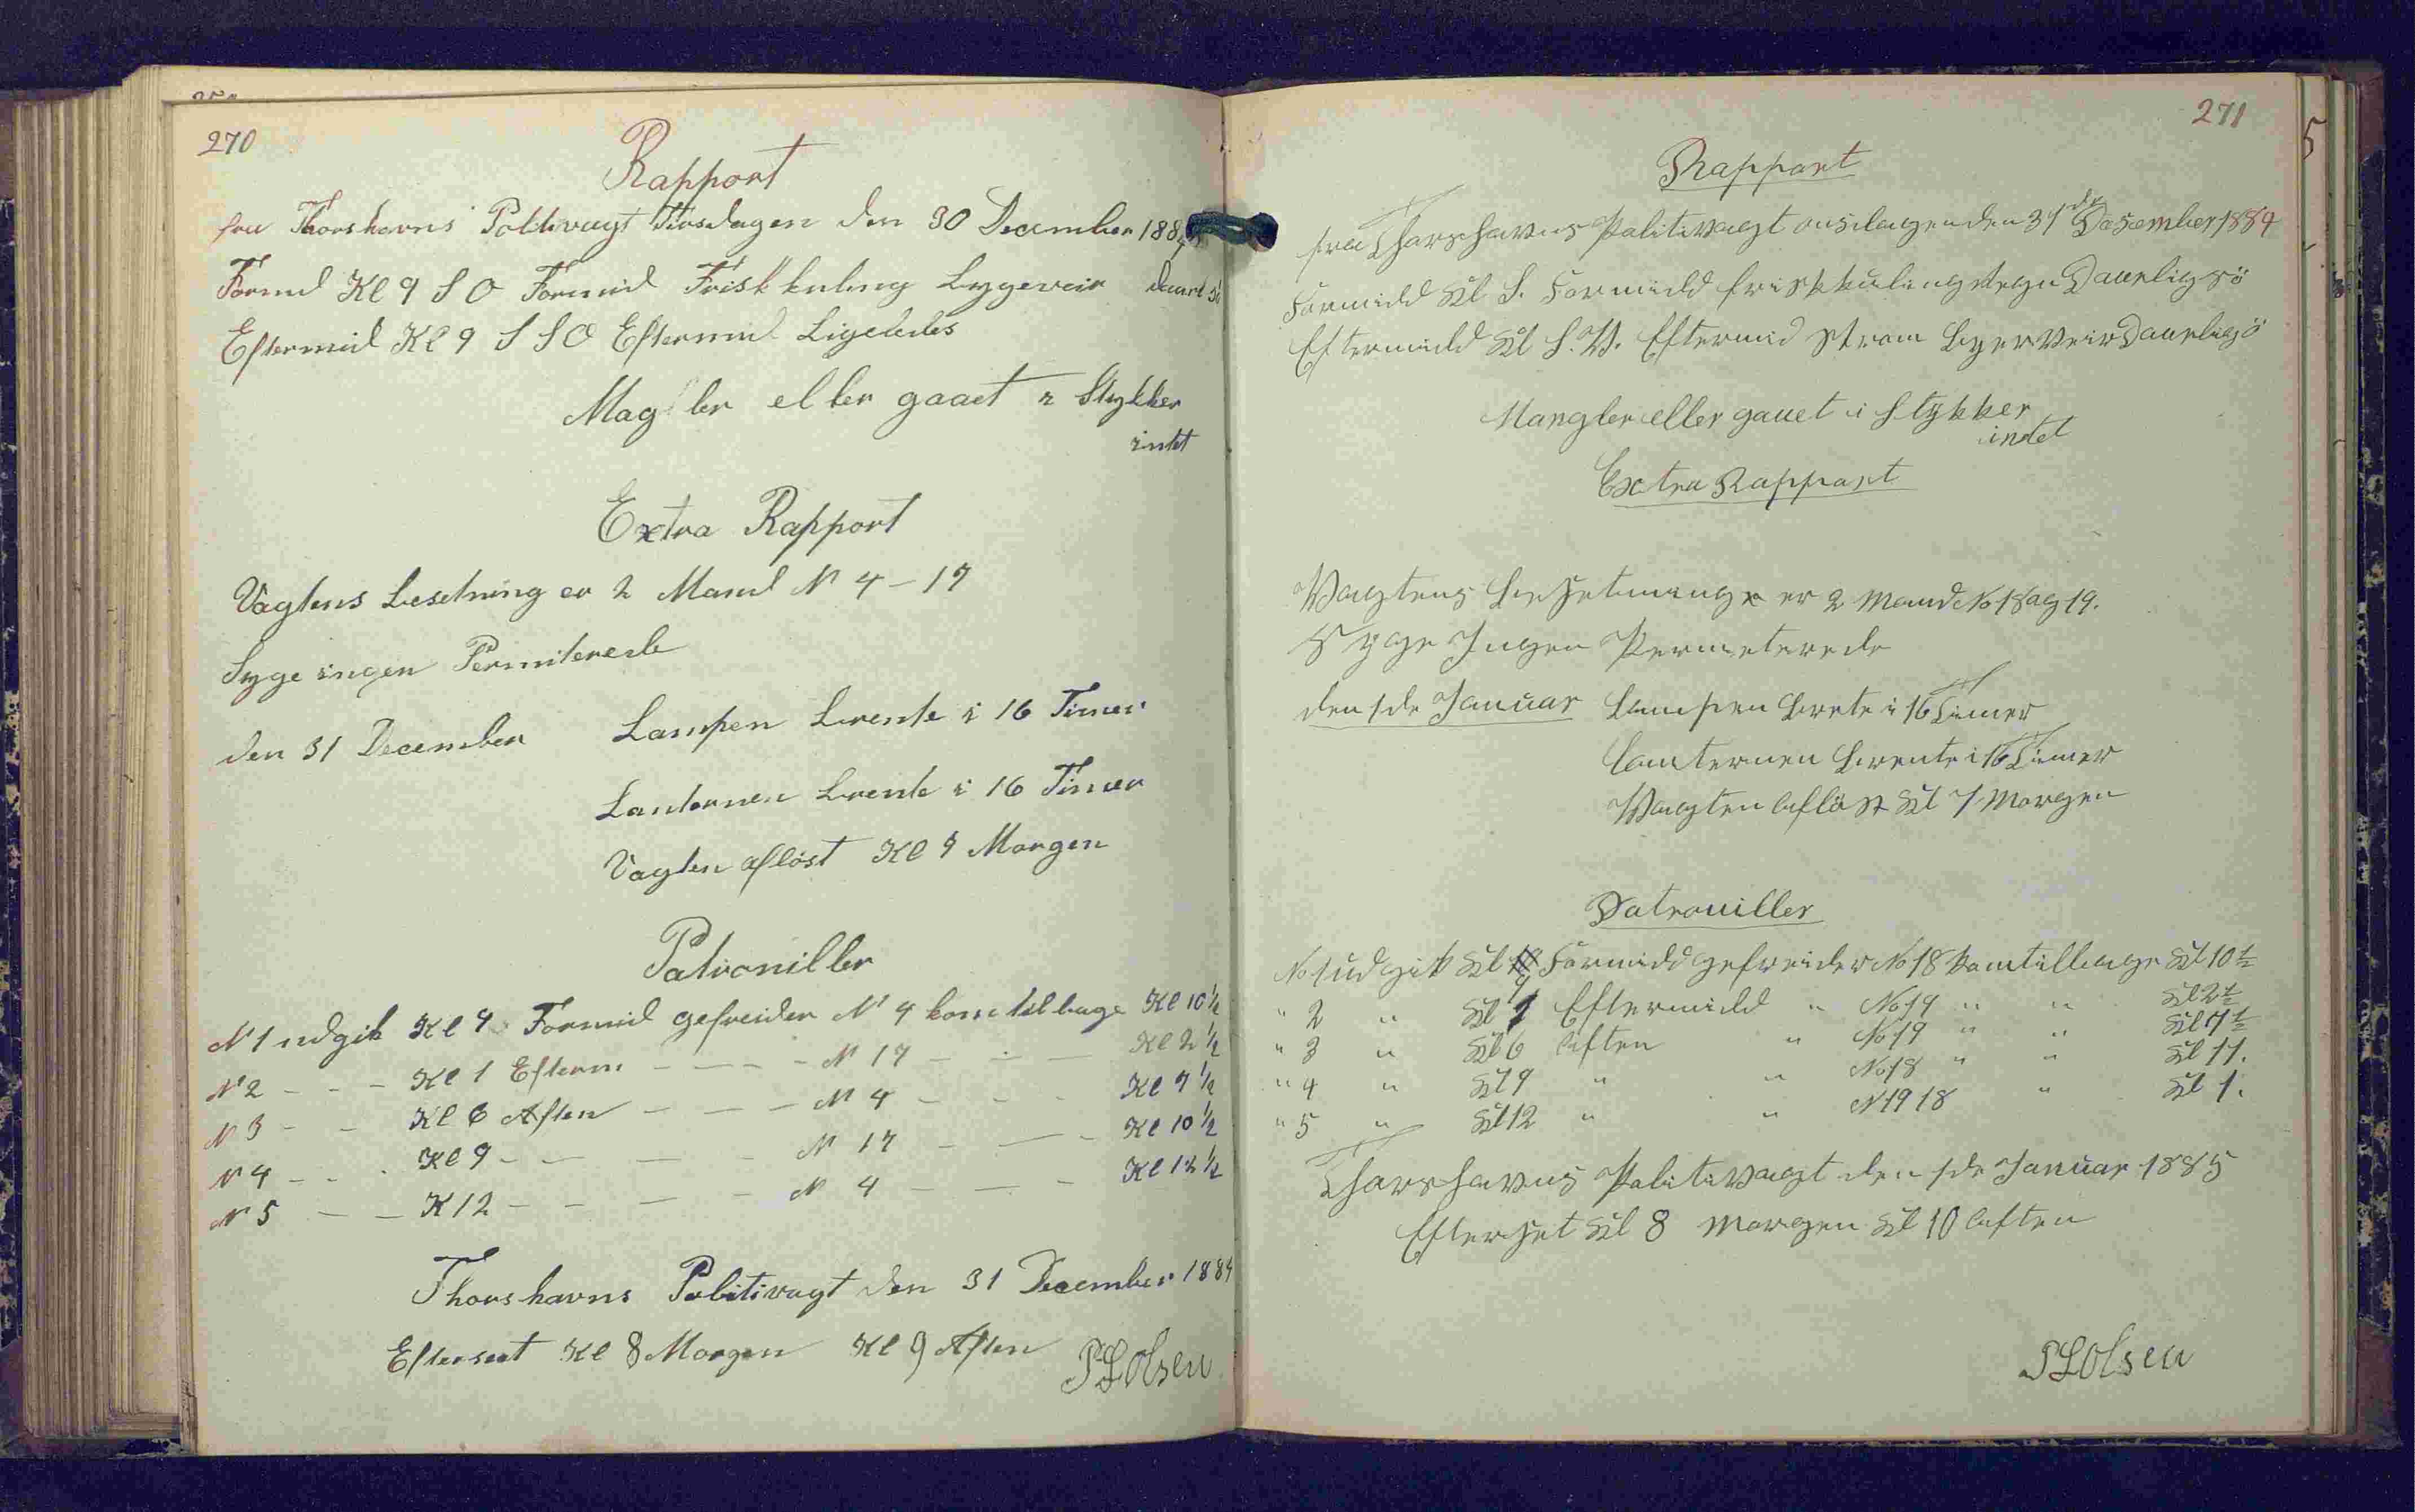 270
Rapport
fra Thorshavns Politivagt Tirsdagen den 30 December 1884
Formd Kl 9 S O Formid Frisk kuling Bygeveir
Eftermid Kl 9 S S O Eftermid Ligeledes
Magler eller gaaet i Stykker
intet
Extra Rapport
Vagtens besetning er 2 Mand N 4 - 17
Syge ingen Permiterede
den 31 December Lampen brente i 16 Timer
Lanternen brente i 16 Timer
Vagten afløst Kl 9 Morgen
Patrouiller
N 1 udgik Kl 9 Formid gefreider N 4 kom tilbage Kl 10 1/2
N 2 - - - Kl 1 Efterm - - - - N 17 - - - Kl 2 1/2
N 3 - - Kl 6 Aften - - - - N 4 - - - Kl 7 1/2
N 4 - - - Kl 9 - - - - N 17 - - - Kl 10 1/2
N 5 - - K 12 - - - - N 4 - - - Kl 12 1/2
Thorshavns Politivagt den 31 December 1884
Efterseet Kl 8 Morgen Kl 9 Aften
P L Olsen
271
Rapport
fra Thorshavns Politivagt onsdagen den 31 de Desember 1884
Formidd Kl S. Formidd frisk kuling Regn Daarlig sö
Eftermidd Kl S. V. Eftermid Byerveir Daarligsö
Mangler eller gaaet i Stykker
indet
Extra Rapport
Vagtens besetning er 2 Mand No 18 og 19.
Syge Ingen Permeterede
den 1de Januar Lampen brente i 16 Timer
Lanternen brente i 16 Timer
Vagten aflöst Kl 7 Morgen
Patrouiller
No 1 udgik Kl 9 Formidd gefreider No 18 kom tilbage Kl 10 1/2
" 2 " Kl 1 Eftermidd " No 19 " " Kl 2 1/2
" 3 " Kl 6 Aften " No 19 " " Kl 7 1/2
" 4 " Kl 9 " " No 18 " " Kl 11.
" 5 " Kl 12 " " N 19 18 " Kl 1.
Thorshavns Politivagt den 1de Januar 1885
Efterset Kl 8 Morgen Kl 10 Aften
P L Olsen